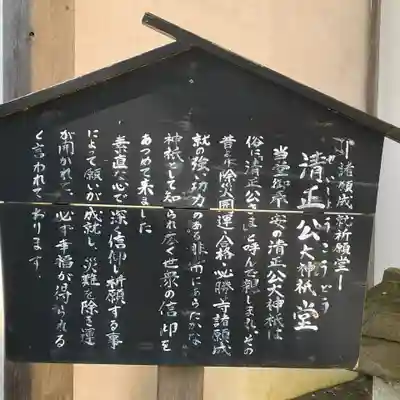 諸願成就祈願堂
せいしょうこうどう
清正公大神祇堂
当堂御奉安の清正公大神祇は
俗に「清正公さま」と呼んで親しまれ、その
昔より除災開運、合格、必勝等諸願成
就の強い功力のある非常にあらたかな
神祇として知られ広く世衆の信仰を
あつめて来ました
素直な心で深く信仰し祈願する事
によって願いが成就し、災難を除き運
が開かれて、必ず幸福が得られる
と言われております。